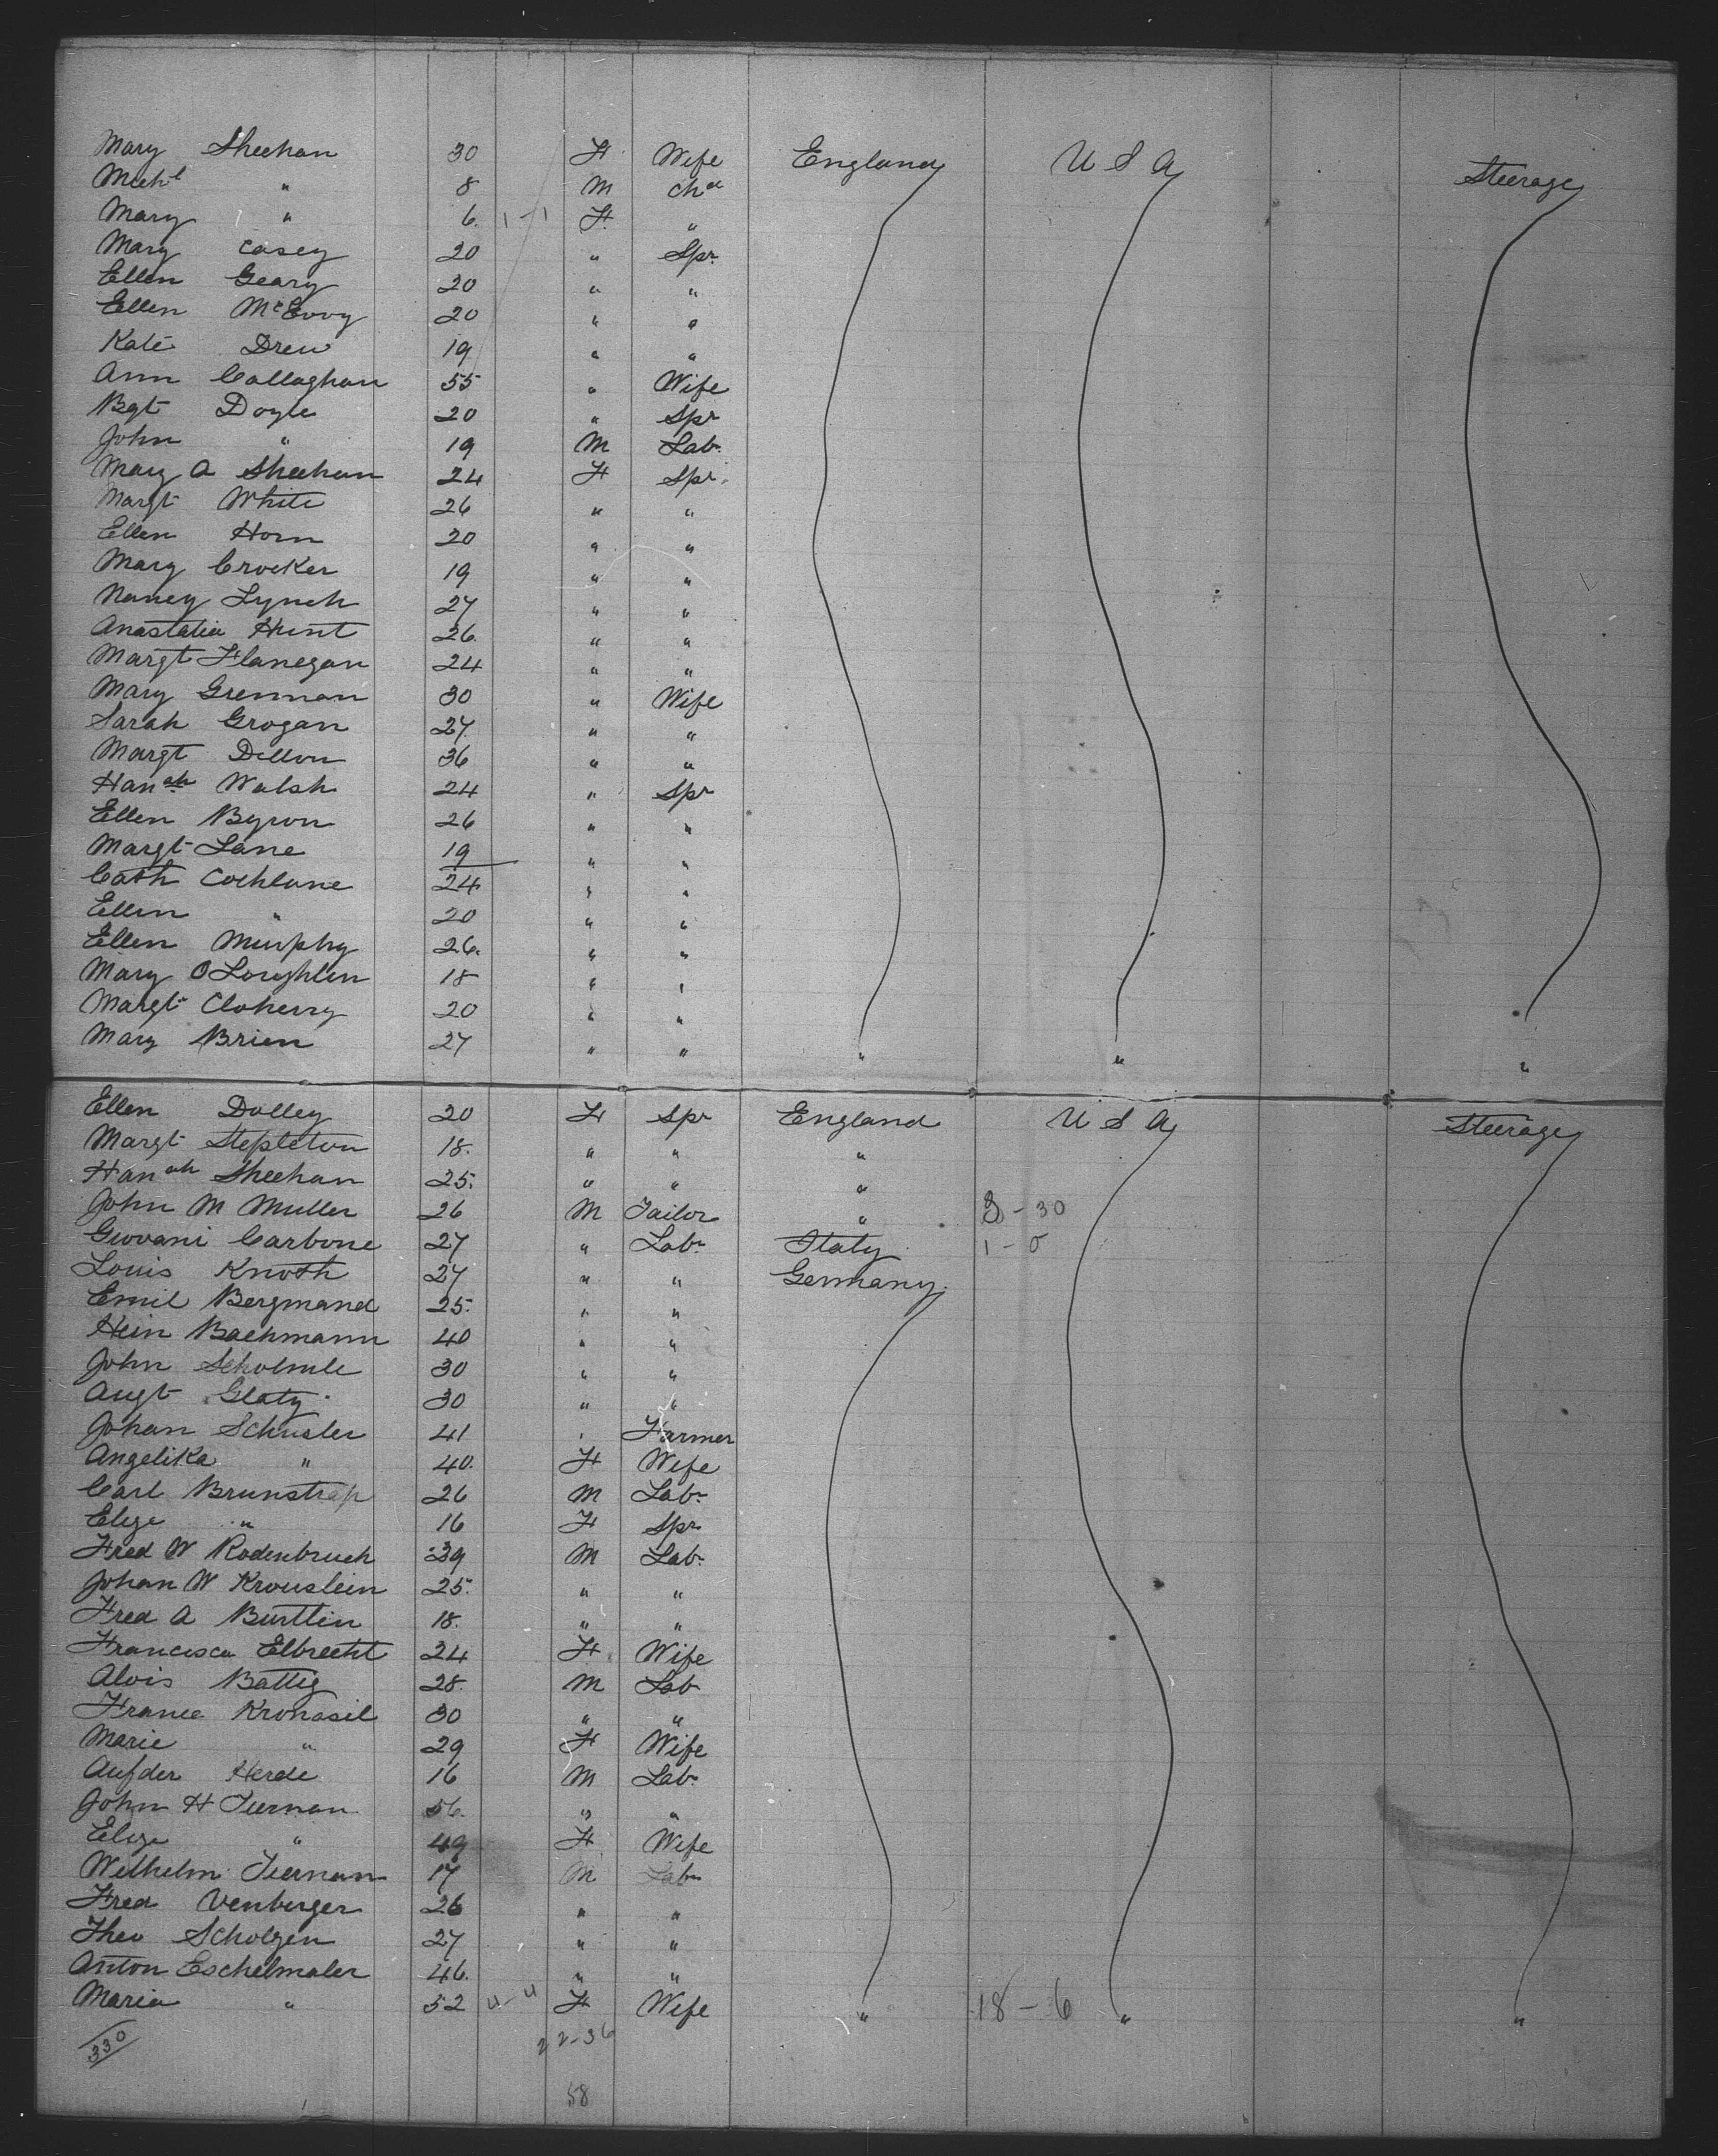 Mary Sheehan 30 F Wife England U S A Steerage
Michl " 8 M Chd
Mary " 6. 1-1 F. "
Mary Casey 20 " Spr
Ellen Geary 20 " "
Ellen McEvoy 20 " "
Kate Drew 19 " "
Ann Callaghan 55 " Wife
Bgt Doyle 20 " Spr
John " 19 M Lab.
Mary A Sheehan 24 F Spr.
Margt White 26 " "
Ellen Horn 20 " "
Mary Crocker 19 " "
Nancy Lynch 27 " "
Anastatia Hunt 26. " "
Margt Flanegan 24 " "
Mary Grennan 30 " Wife
Sarah Grogan 27. " "
Margt Dillon 36 " "
Hanah Walsh 24 " Spr
Ellen Byron 26 " "
Margt Lane 19 " "
Cath Cochlane 24 " "
Ellen " 20 " "
Ellen Murphy 26. " "
Mary O Loughlin 18 " "
Margt Cloherry 20 " "
Mary Brien 27 " " " " "
Ellen Dolley 20 F Spr England U S A Steerage
Margt Stepleton 18. " " "
Hanah Sheehan 25. " " "
John M Muller 26 M Tailor " 3-30
Giovani Carbone 27 " Labr Italy 1-0
Louis Knoth 27 " " Germany.
Emil Bergmand 25. " "
Hein Bachmann 40 " "
John Scholmle 30 " "
Augt Glatz 30 " "
Johan Schusler 41 " Farmer
Angelika " 40. F Wife
Carl Brunstrap 26 M Labr
Elize " 16 F Spr
Fred W Rodenbruch 39 M Lab.
Johan W Krouslein 25. " "
Fred A Burttin 18. " "
Francisca Elbrecht 24 F Wife
Alois Battig 28. M Lab
Franca Kronasil 30 " "
Marie " 29 F Wife
Aufder Herde 16 M Lab.
John H Tiernan 56. " "
Elize " 49 F Wife
Wilhelm Tiernan 17 M Lab
Fred Venberger 26 " "
Theo Scholzen 27 " "
Anton Eschelmaler 46. " "
Maria " 52 4-4 F Wife " 18-6 " "
330 22-36
58